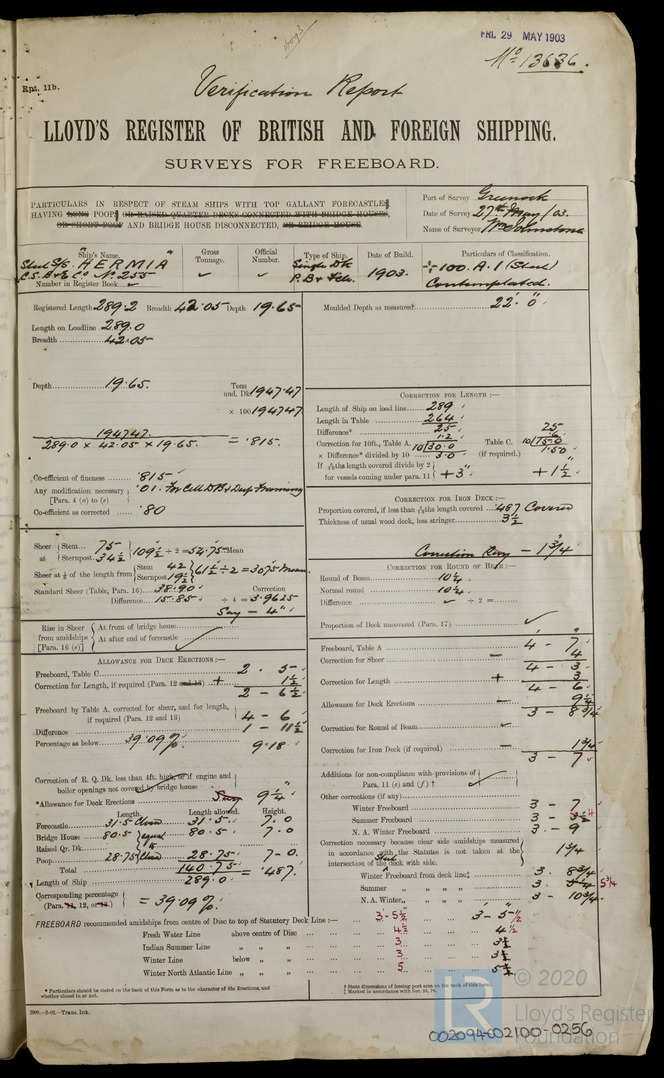 FRI. 29 MAY 1903
No. 13636.
Rpt. 11b.
Verification Report
LLOYD'S REGISTER OF BRITISH AND FOREIGN SHIPPING.
SURVEYS FOR FREEBOARD.
PARTICULARS IN RESPECT OF STEAM SHIPS WITH TOP GALLANT FORECASTLES,
HAVING LONG POOPS OR RAISED QUARTER DECKS CONNECTED WITH BRIDGE HOUSES,
OR SHORT POOP AND BRIDGE HOUSE DISCONNECTED, OR BRIDGE HOUSE
Port of Survey Greenock
Date of Survey 27th May/03.
Name of Surveyor Wm Johnstone
Ship's Name. Gross Tonnage. Official Number. Type of Ship. Date of Build. Particulars of Classification.
Steel S/s "HERMIA" Single Dk 1903. +100.A.1 (Steel)
C.S.B&E Co No 255 P.B & Fcle. Contemplated.
Number in Register Book
Registered Length 289.2 Breadth 42.05 Depth 19.65
Length on Loadline 289.0
Breadth 42.05
Depth 19.65. Tons und. Dk 1947.47
× 100 194747
194747.
289.0 × 42.05 × 19.65 = .815.
Co-efficient of fineness .815
Any modification necessary .01. For Cell D.B & Deep Framing
[Para. 4 (a) to (e)
Co-efficient as corrected .80
Sheer at Stem 75 Sternpost 34½ 109½ ÷ 2 = 54.75 Mean
Sheer at ⅛ of the length from Stem 42 Sternpost 19½ 61½ ÷ 2 = 30.75 Mean
Standard Sheer (Table, Para. 16) 38.90 Correction
Difference 15.85 ÷ 4 = 3.9625
Say - 4"
Rise in Sheer from amidships [Para. 16 (e)]
At front of bridge house
At after end of forecastle
ALLOWANCE FOR DECK ERECTIONS:—
Freeboard, Table C 2 . 5
Correction for Length, if required (Para. 12 and 13) + 1½
2 - 6½
Freeboard by Table A. corrected for sheer, and for length,
if required (Para. 12 and 13) 4 - 6
Difference 1 - 11½
Percentage as below 39.09% 9.18
Correction of R. Q. Dk. less than 4ft. high, or if engine and
boiler openings not covered by bridge house
*Allowance for Deck Erections Say 9¼"
Length. Length allowed. Height.
Forecastle 31.5 Closed 31.5 7.0
Bridge House 80.5 80.5 7.0
Raised Qr. Dk.
Poop 28.75 Closed 28.75 7-0.
Total 140.75
Length of Ship 289.0 = .487.
Corresponding percentage
(Para. 11, 12, or 13.) = 39.09%.
Moulded Depth as measured 22'. 0"
CORRECTION FOR LENGTH:—
Length of Ship on load line 289
Length in Table 264
Difference 25 25
Correction for 10ft., Table A. 1.2 Table C. 6
10|30.0 10|15.0
× Difference divided by 10 3.0 (if required.) 1.50
If 6/10ths length covered divide by 2
for vessels coming under para. 11 +3" +1½"
CORRECTION FOR IRON DECK:—
Proportion covered, if less than 7/10ths length covered .487 Covered
Thickness of usual wood deck, less stringer 3½
Correction Reqd — 1¾"
CORRECTION FOR ROUND OF BEAM:—
Round of Beam 10¼
Normal round 10¼
Difference ÷ 2 =
Proportion of Deck uncovered (Para. 17)
Freeboard, Table A 4 - 7
Correction for Sheer — 4
4 - 3
Correction for Length + 3
4 - 6
Allowance for Deck Erections — 9¼
3 - 8¾
Correction for Round of Beam
Correction for Iron Deck (if required) — 1¾
3 - 7
Additions for non-compliance with provisions of
Para. 11 (e) and (f) †
Other corrections (if any)
Winter Freeboard 3 - 7
Summer Freeboard 3 -
N. A. Winter Freeboard 3 - 9
Correction necessary because clear side amidships measured
in accordance with the Statutes is not taken at the
intersection of the deck with side. 1¾
Winter Freeboard from deck line‡ 3. 8¾
Summer „ „ „ „ 3. 5¾
N. A. Winter „ „ „ 3 - 10¾
FREEBOARD recommended amidships from centre of Disc to top of Statutory Deck Line:— 3-5½ 3 - 5½
Fresh Water Line above centre of Disc 4½ 4½
Indian Summer Line „ „ „ 3 3½
Winter Line below „ „ 3 3½
Winter North Atlantic Line „ „ „ 5 5½
* Particulars should be stated on the back of this Form as to the character of the Erections, and
whether closed in or not.
† State dimensions of freeing port area on the back of this form.
‡ Marked in accordance with Sec. 25, 26.
2000.—3-02.—Trans. Ink.
© 2020
Lloyd's Register
Foundation
002094-002100-0256